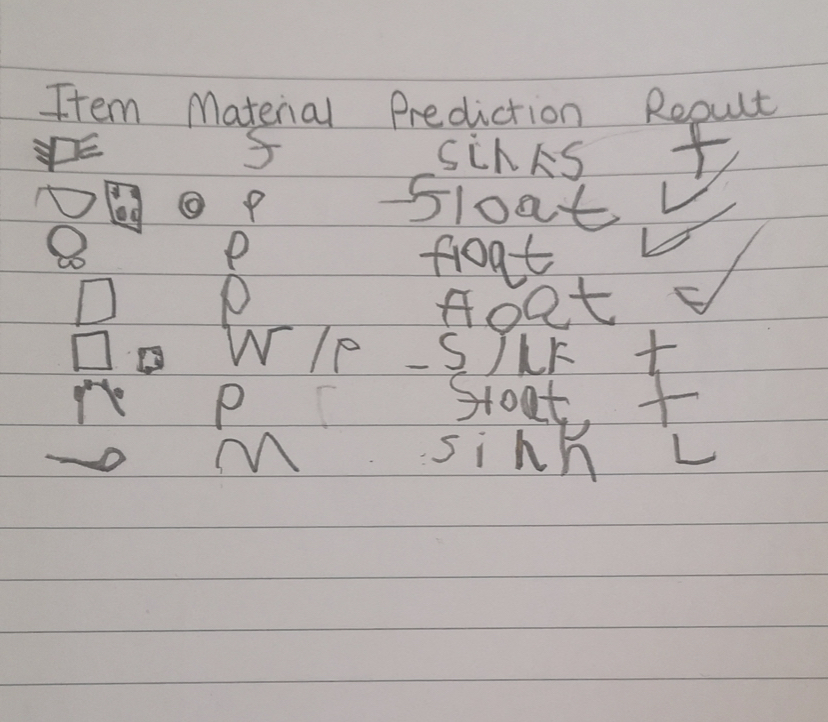 Item Material Prediction Result
F sinks +
P Float ✓
P float ✓
P float ✓
W/P sink +
P Float +
M sink